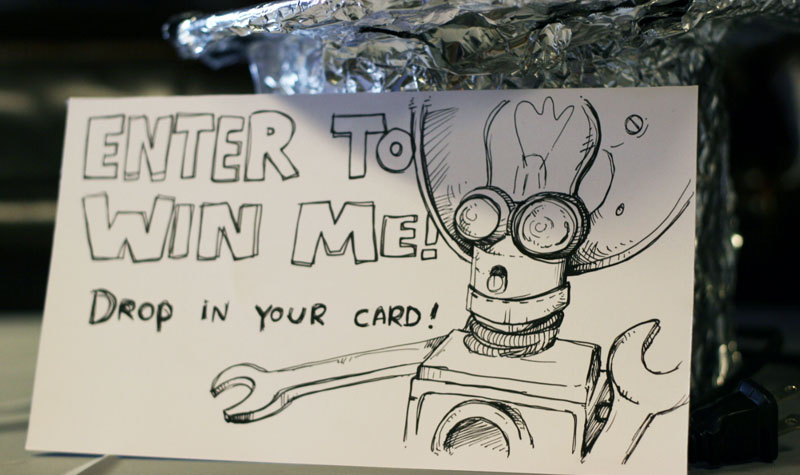 ENTER TO
WIN ME!
DROP IN YOUR CARD!